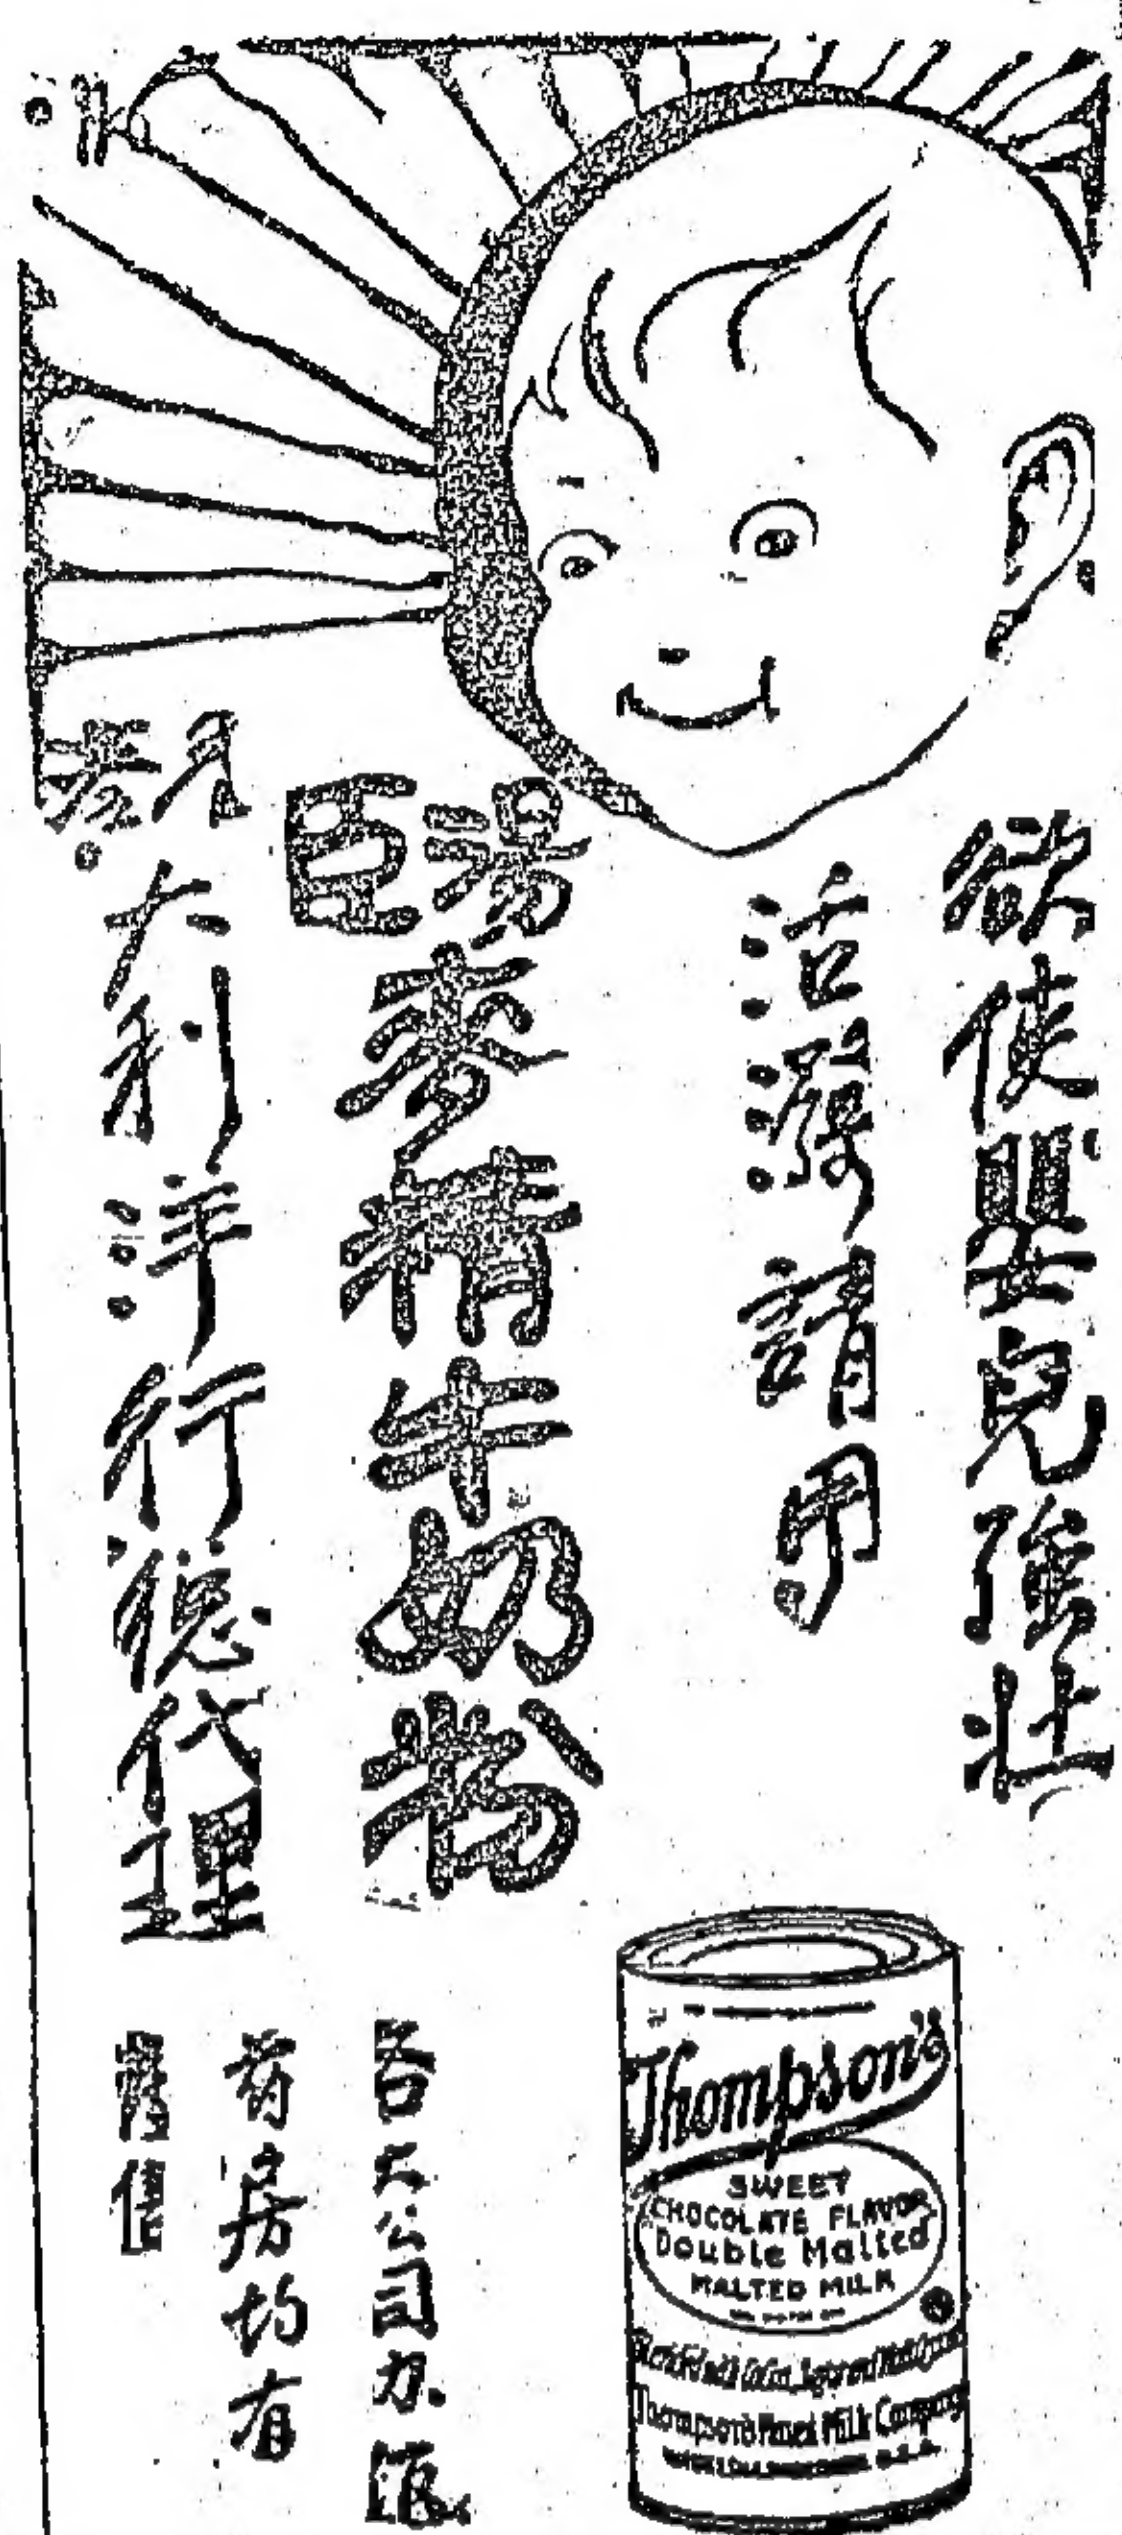 欲使嬰兒強壯
活潑請用
湯臣麥精牛奶粉
大利洋行總代理
各大公司
葯房均有
售
Thompson's
SWEET
CHOCOLATE FLAVOR
Double Malted
MALTED MILK
Thompson's Malted Milk Company